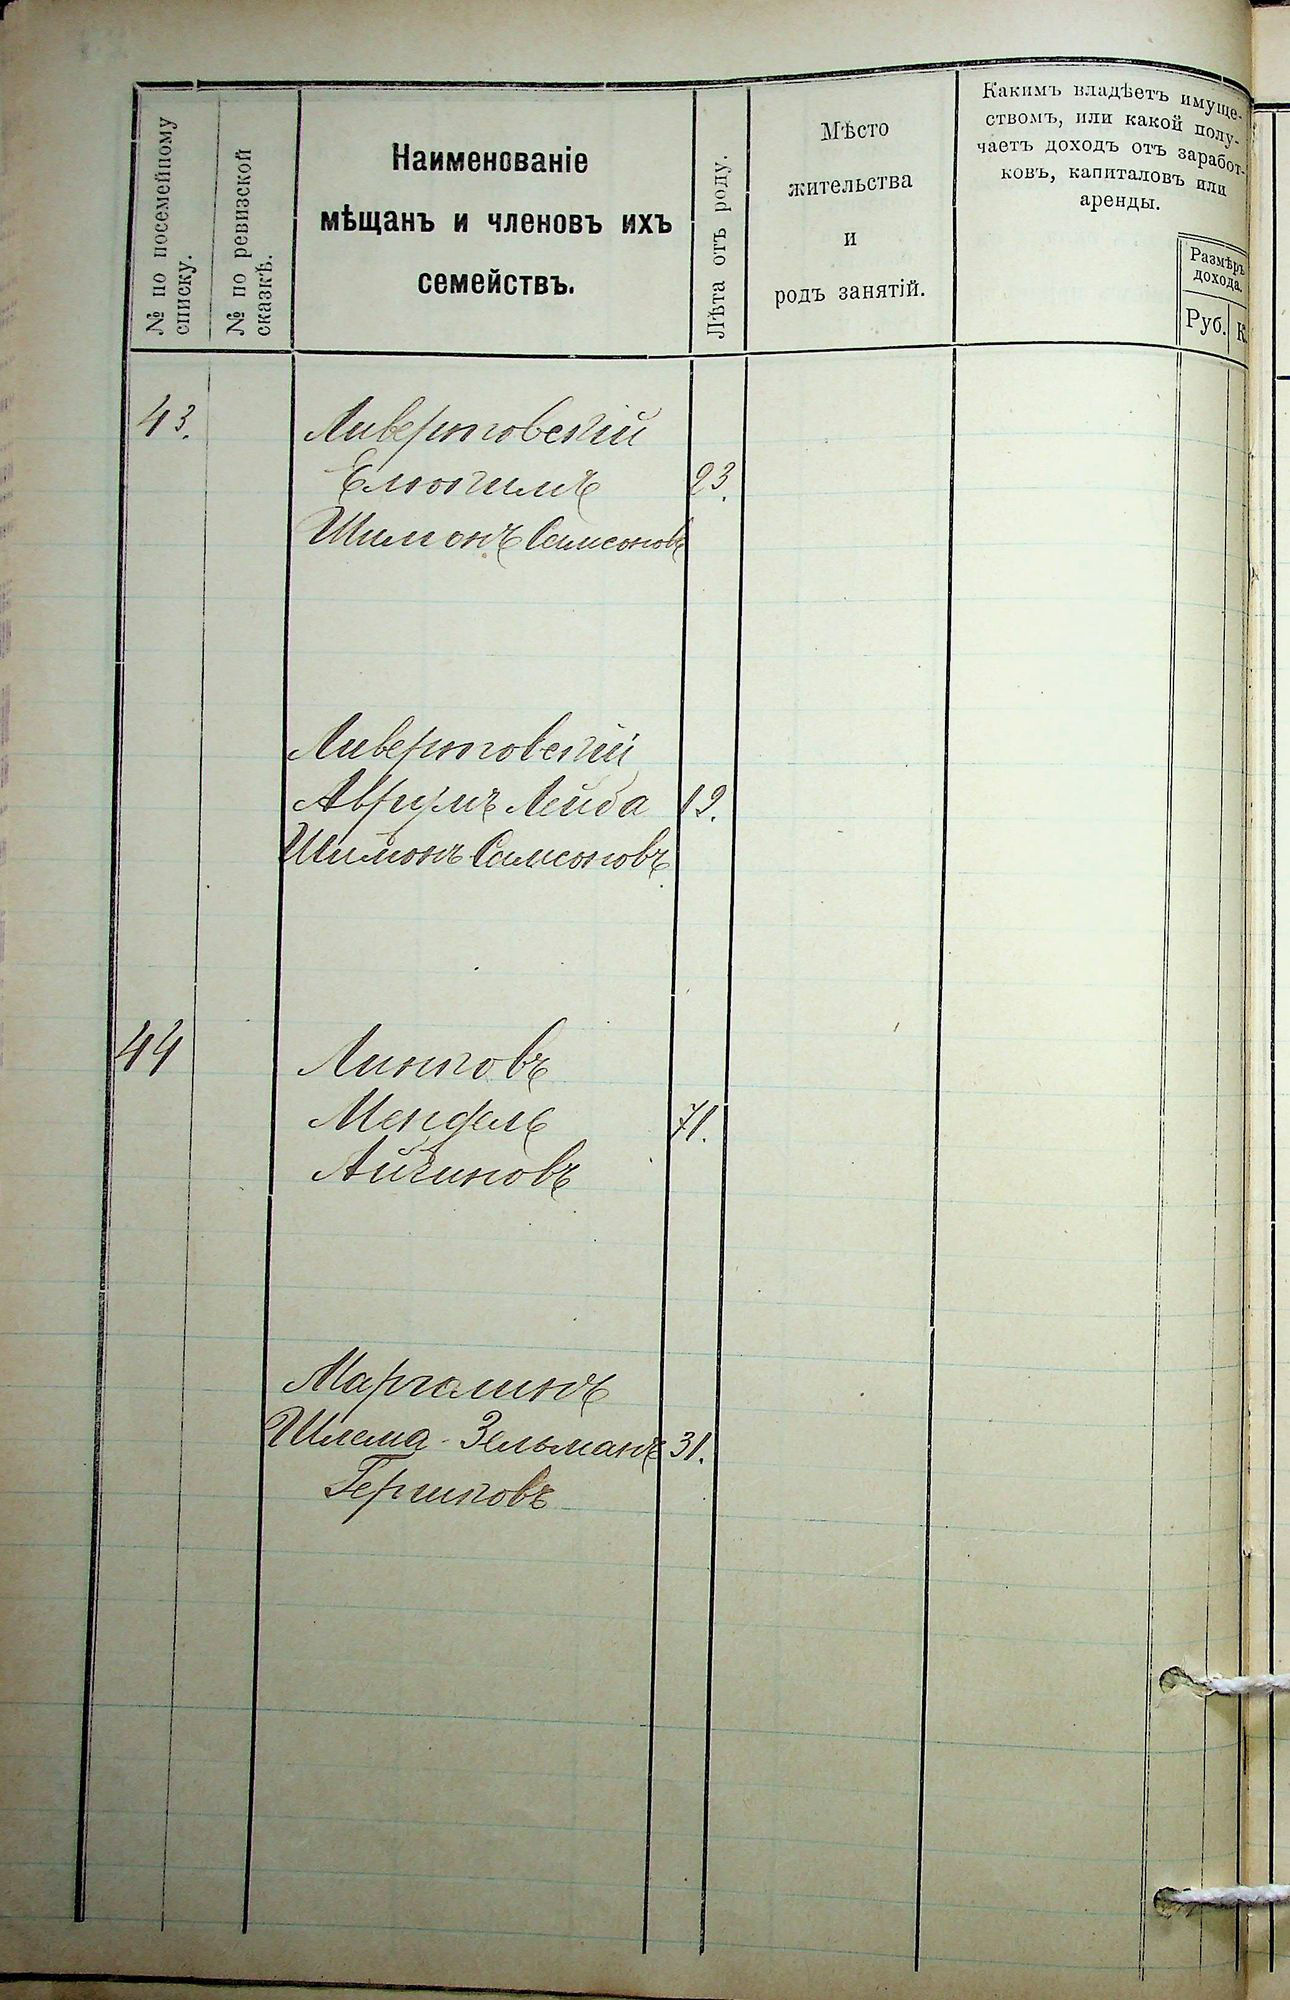 № по посемейному
списку.
№ по ревизской
сказкѣ.
Наименованіе
мѣщанъ и членовъ ихъ
семействъ.
Лѣта отъ роду.
Мѣсто
жительства
и
родъ занятій.
Какимъ владѣетъ имуще-
ствомъ, или какой полу-
чаетъ доходъ отъ заработ-
ковъ, капиталовъ или
аренды.
Размѣръ
дохода.
Руб. К.
43. Ливертовскій
23.
Шимонъ Самсоновъ
Ливертовскій
Аврумъ Лейба 19.
Шимонъ Самсоновъ
44 Линковъ
Мендель 71.
Марголинъ
Шлема - Зельманъ 31.
Гершковъ